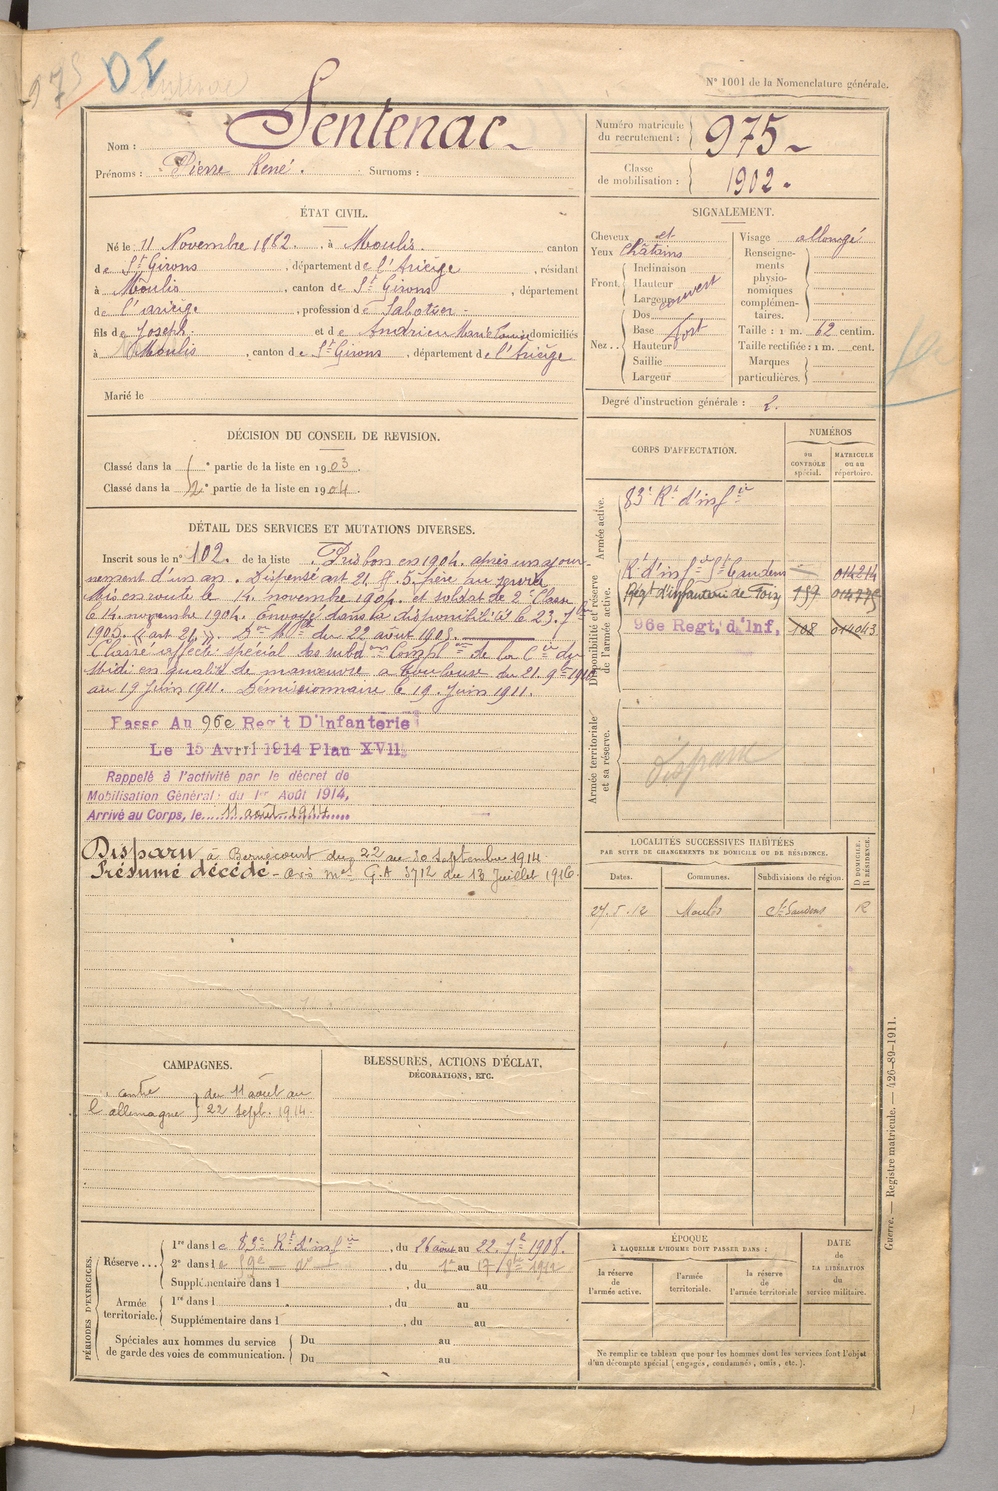 975 DI
N° 1001 de la Nomenclature générale.
Nom : Sentenac
Prénoms : Pierre René. Surnoms :
Numéro matricule du recrutement : 975
Classe de mobilisation : 1902.
ÉTAT CIVIL.
Né le 11 Novembre 1882, à Moulis canton
de St Girons, département de l'Ariège, résidant
à Moulis, canton de St Girons, département
de l'ariège, profession de Sabotier
fils de Joseph et de Andrieu Marie Louise domiciliés
à Moulis, canton de St Girons, département de l'Ariège
Marié le
SIGNALEMENT.
Cheveux et
Yeux Châtains
Front. Inclinaison
Hauteur
Largeur ouvert
Nez.. Dos
Base fort
Hauteur
Saillie
Largeur
Visage allongé
Renseignements physionomiques complémentaires.
Taille : 1 m. 62 centim.
Taille rectifiée : 1 m. cent.
Marques particulières.
Degré d'instruction générale : 2.
DÉCISION DU CONSEIL DE REVISION.
Classé dans la e partie de la liste en 1903.
Classé dans la 2e partie de la liste en 1904.
DÉTAIL DES SERVICES ET MUTATIONS DIVERSES.
Inscrit sous le n° 102. de la liste Pris bon en 1904. après un ajour-
nement d'un an. Dispensé art 21 § 5. frère au service
Mis en route le 14 novembre 1904. et soldat de 2e Classe
le 14 novembre 1904. Envoyé dans la disponibilité le 23. 7bre
1905. "art 21". Don Mlle du 22 août 1905.
Classé affecté spécial des subdons Complres de la Cie du
Midi en qualité de manœuvre à Toulouse du 21. 9bre 1910
au 19 Juin 1911. Démissionnaire le 19. Juin 1911.
Passe Au 96e Reg't D'Infanterie
Le 15 Avril 1914 Plan XVII,
Rappelé à l'activité par le décret de
Mobilisation Général: du 1er Août 1914,
Arrivé au Corps, le 11 août 1914
Disparu à Bernecourt du 22 au 30 septembre 1914
Présumé décédé - avis mel G.A 3712 du 13 Juillet 1916.
CORPS D'AFFECTATION.
NUMÉROS
au CONTRÔLE spécial.
MATRICULE ou au répertoire.
Armée active.
83e Rt d'infie
Disponibilité et réserve de l'armée active.
Rt d'infie St Gaudens 014214
Régt d'infanterie de Foix 159 014775
96e Regt, d'Inf, 108 014043
Armée territoriale et sa réserve.
disparu
LOCALITÉS SUCCESSIVES HABITÉES
PAR SUITE DE CHANGEMENTS DE DOMICILE OU DE RÉSIDENCE.
Dates. Communes. Subdivisions de région. D DOMICILE. R RÉSIDENCE.
27.5.12 Moulis St Gaudens R
CAMPAGNES.
contre l'allemagne } du 11 août au 22 sept. 1914.
BLESSURES, ACTIONS D'ÉCLAT,
DÉCORATIONS, ETC.
PÉRIODES D'EXERCICES.
Réserve... 1re dans le 83e Rt d'infie, du 26 août au 22. 7bre 1908.
2e dans le 59e d°, du 1er au 17 9bre 1912
Supplémentaire dans l , du au
Armée territoriale. 1re dans l , du au
Supplémentaire dans l , du au
Spéciales aux hommes du service de garde des voies de communication. Du au
Du au
ÉPOQUE
À LAQUELLE L'HOMME DOIT PASSER DANS :
la réserve de l'armée active.
l'armée territoriale.
la réserve de l'armée territoriale
DATE de LA LIBÉRATION du service militaire.
Ne remplir ce tableau que pour les hommes dont les services font l'objet
d'un décompte spécial (engagés, condamnés, omis, etc.).
Guerre. — Registre matricule. — 426-89-1911.